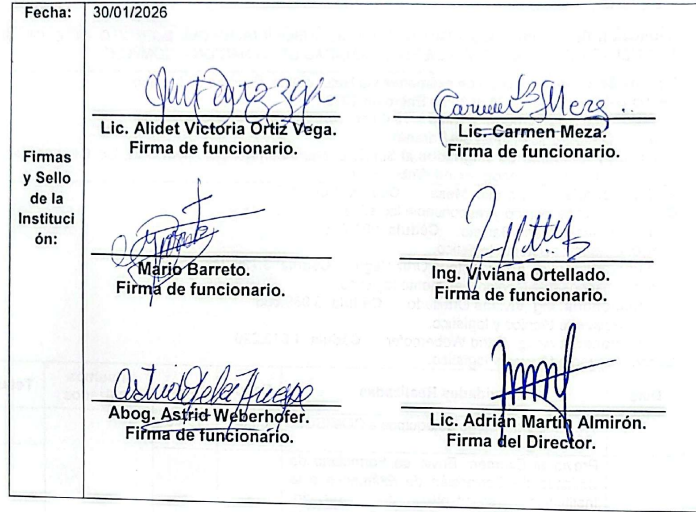 Fecha:
30/01/2026
Firmas
y Sello
de la
Instituci
ón:
Lic. Alidet Victoria Ortiz Vega.
Firma de funcionario.
Lic. Carmen Meza.
Firma de funcionario.
Mario Barreto.
Firma de funcionario.
Ing. Viviana Ortellado.
Firma de funcionario.
Abog. Astrid Weberhofer.
Firma de funcionario.
Lic. Adrián Martín Almirón.
Firma del Director.